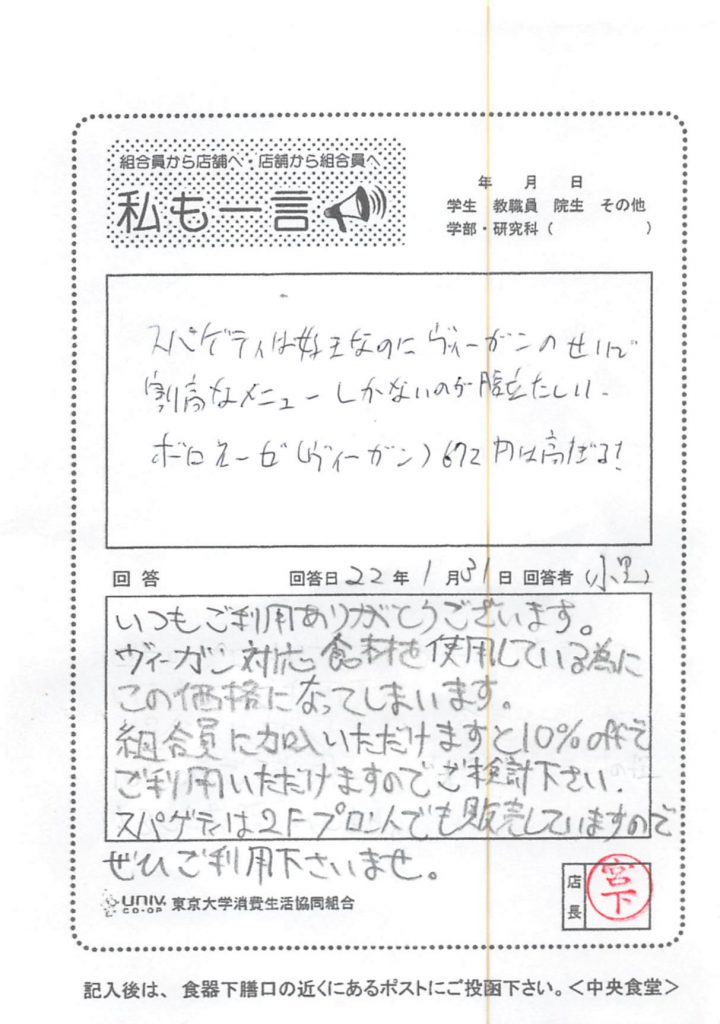 組合員から店舗へ・店舗から組合員へ
私も一言
年 月 日
学生 教職員 院生 その他
学部・研究科( )
スパゲティは好きなのにヴィーガンのせいで
割高なメニューしかないのが腹立たしい.
ボロネーゼ(ヴィーガン)672円は高すぎる!
回答 回答日22年1月31日 回答者(小里)
いつもご利用ありがとうございます。
ヴィーガン対応食材を使用している為に
この価格になってしまいます。
組合員に加入いただけますと10%offで
ご利用いただけますのでご検討下さい.
スパゲティは2Fプロントでも販売していますので
ぜひご利用下さいませ。
UNIV. CO-OP 東京大学消費生活協同組合
店長 宮下
記入後は、食器下膳口の近くにあるポストにご投函下さい。<中央食堂>